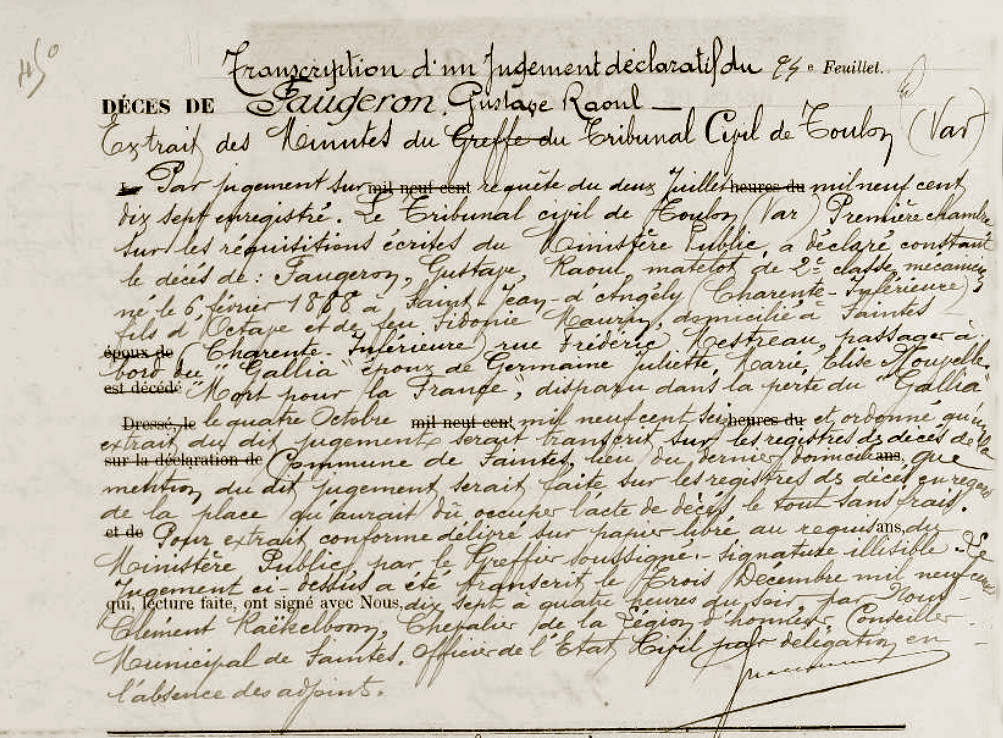 450
Transcription d'un Jugement déclaratif du 94e Feuillet.
DÉCES DE Faugeron, Gustave Raoul —
Extrait des Minutes du Greffe du Tribunal Civil de Toulon (Var)
Le Par jugement sur mil neuf cent requête du deux Juillet heures du mil neuf cent
dix sept enregistré. Le Tribunal civil de Toulon (Var) Première chambre
sur les réquisitions écrites du Ministère Public, a déclaré constant
le décès de : Faugeron, Gustave, Raoul, matelot de 2e classe, mécanicien,
né le 6, février 1888 à Saint-Jean-d'Angély (Charente-Inférieure),
fils d'Octave et de feu Sidonie Maurin, domicilié à Saintes
époux de (Charente-Inférieure) rue Frédéric Mestreau, passager à
bord du "Gallia" époux de Germaine Juliette, Marie, Elise Nouvelle.
est décédé "Mort pour la France", disparu dans la perte du "Gallia"
Dressé, le le quatre Octobre mil neuf cent mil neuf cent seize heures du et ordonné qu'un
extrait du dit jugement serait transcrit sur les registres de décès de la
sur la déclaration de Commune de Saintes, lieu du dernier domicile ans, que
mention du dit jugement serait faite sur les registres de décès en regard
de la place qu'aurait dû occuper l'acte de décès, le tout sans frais.
et de Pour extrait conforme délivré sur papier libre au requis ans, du
Ministère Public, par le Greffier soussigné - signature illisible. Le
Jugement ci-dessus a été transcrit le Trois Décembre mil neuf cent
qui, lecture faite, ont signé avec Nous, dix sept à quatre heures du soir, par Nous
Clément Kaëkelboom, Chevalier de la Légion d'honneur, Conseiller
Municipal de Saintes. Officier de l'Etat Civil par délégation en
l'absence des adjoints.